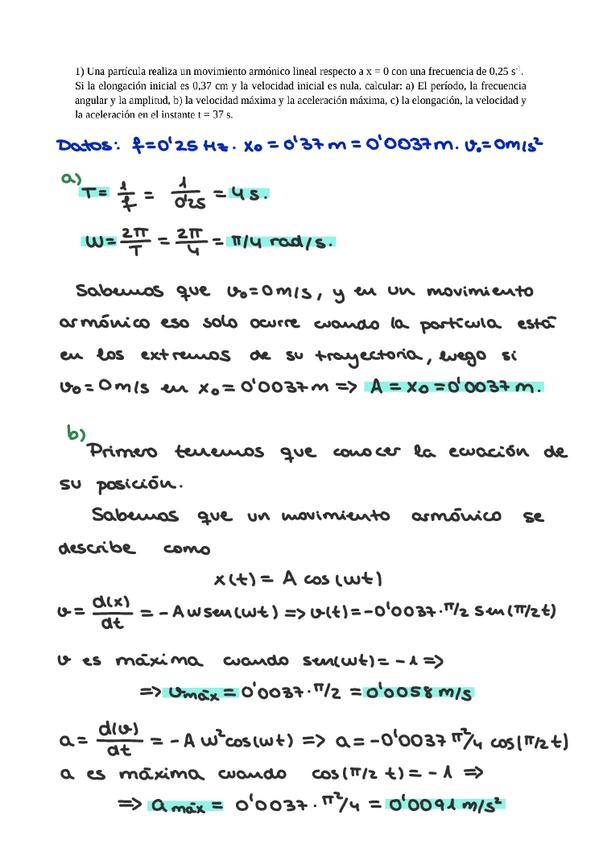 1) Una partícula realiza un movimiento armónico lineal respecto a x = 0 con una frecuencia de 0,25 s⁻¹.
Si la elongación inicial es 0,37 cm y la velocidad inicial es nula, calcular: a) El período, la frecuencia
angular y la amplitud, b) la velocidad máxima y la aceleración máxima, c) la elongación, la velocidad y
la aceleración en el instante t = 37 s.
Datos: f=0'25 Hz. x₀ = 0'37 m = 0'0037 m. v₀=0m/s²
a)
T= 1/f = 1/0'25 = 4 s.
W= 2π/T = 2π/4 = π/4 rad/s.
Sabemos que v₀=0m/s, y en un movimiento
armónico eso solo ocurre cuando la partícula está
en los extremos de su trayectoria, luego si
v₀=0m/s en x₀=0'0037m => A = x₀ =0'0037 m.
b)
Primero tenemos que conocer la ecuación de
su posición.
Sabemos que un movimiento armónico se
describe como
x(t) = A cos (wt)
v= d(x)/dt = -A w sen(wt) => v(t)=-0'0037·π/2 sen(π/2 t)
v es máxima cuando sen(wt)= -1 =>
=> vmáx = 0'0037·π/2 = 0'0058 m/s
a= d(v)/dt = -A w² cos(wt) => a=-0'0037 π²/4 cos(π/2 t)
a es máxima cuando cos(π/2 t)= -1 =>
=> a máx = 0'0037·π²/4 = 0'0091 m/s²